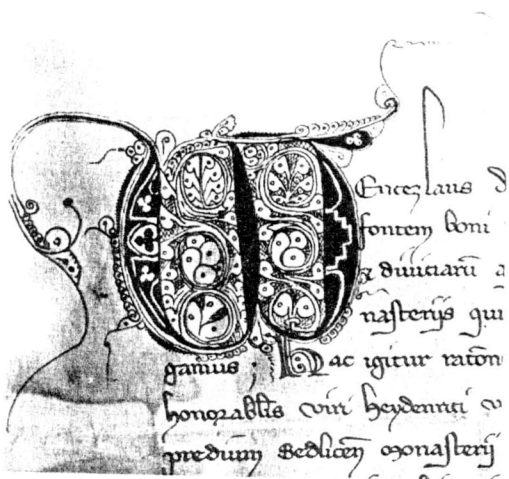 Wenczlaus d
fontem boni
& diuitiarū a
nasterijs qui
gamus ; Hac igitur ratōn
honorabl̄is viri heydenrici v
predium Sedlicen̄ monasterij